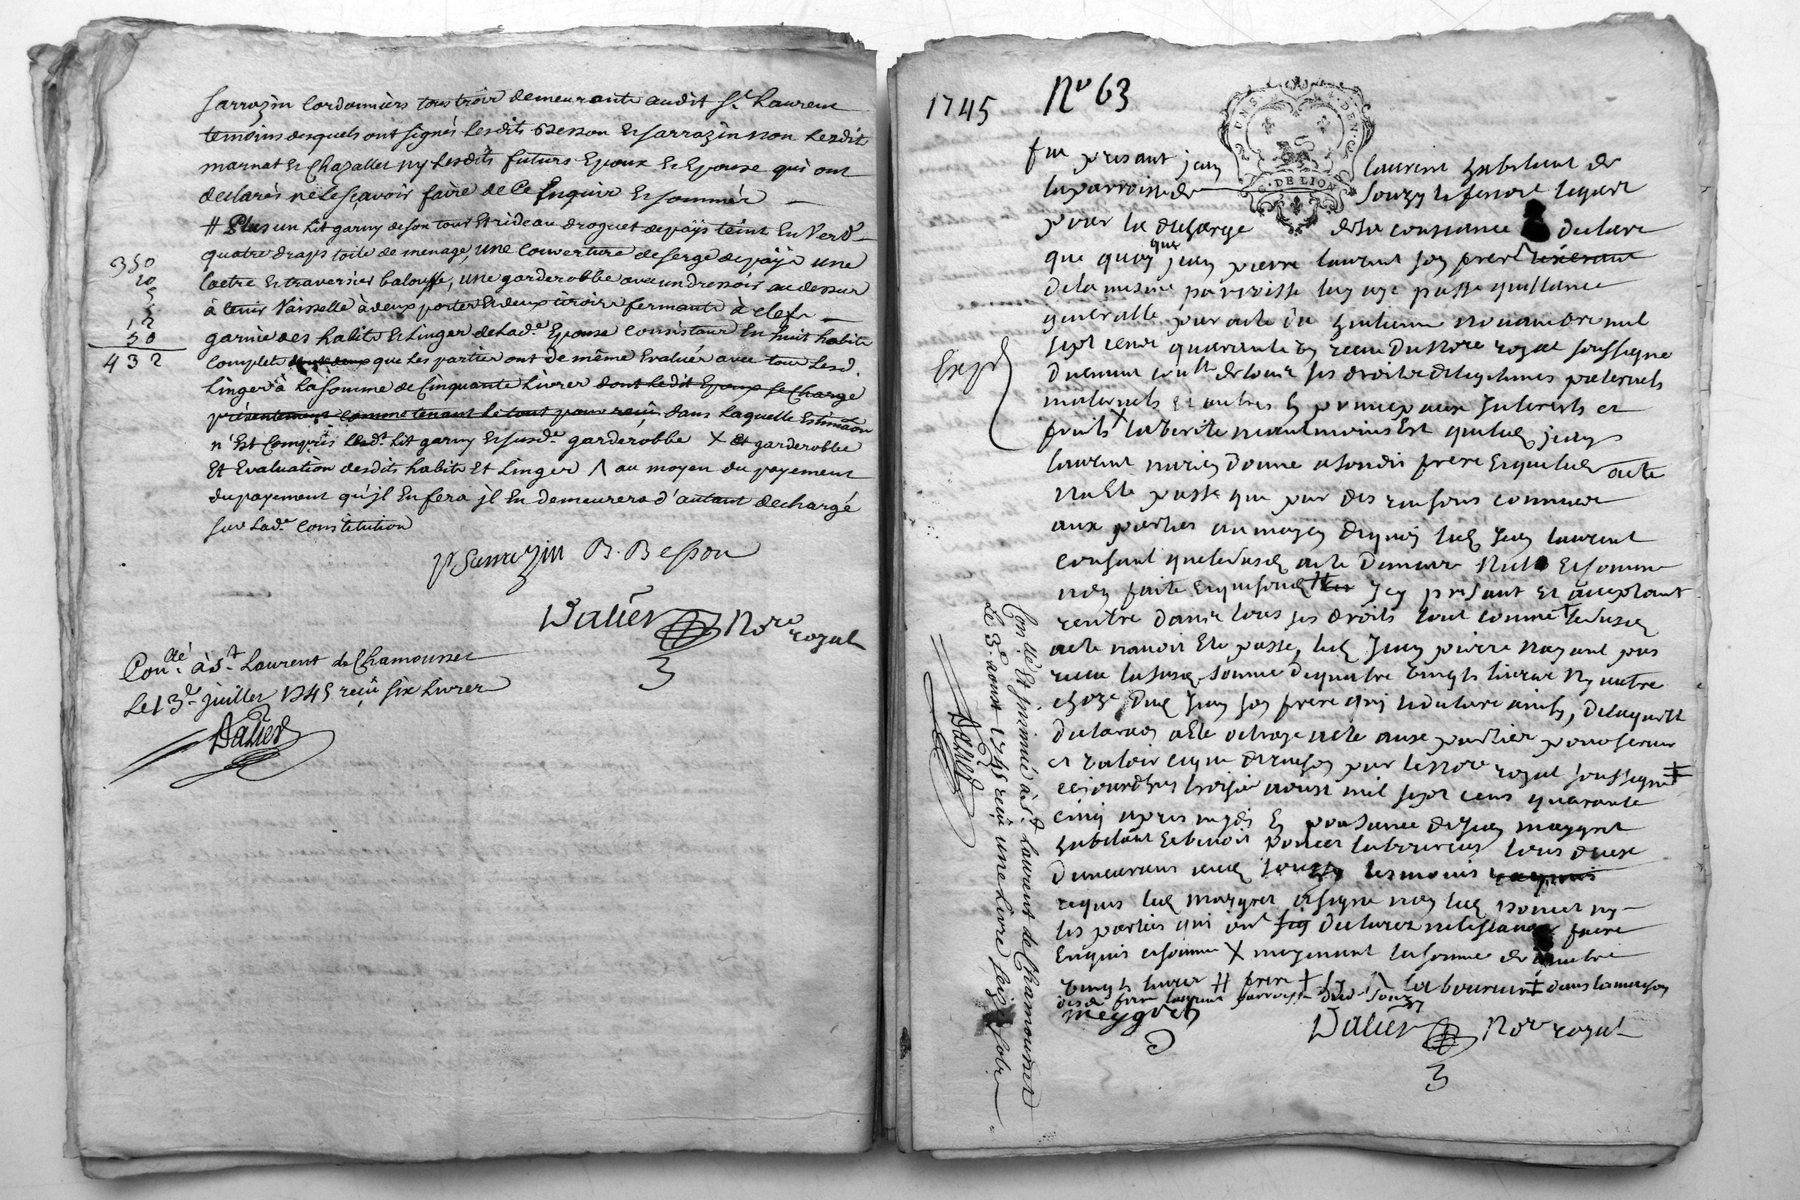 Sarrazin Cordonniers tous trois demeurants audit St Laurent
temoins desquels ont signés lesdits Besson et sarrazin non lesdit
marnat et Chazallet ny lesdits futurs Epoux et Epouse qui ont
declarés ne le sçavoir faire de Ce Enquis et sommés
# Plus un lit garny de son tour et rideau droguet de païs teint En Verd
quatre draps toile de menage, une couverture de serge de païs une
laetre et traversier balouffe, une garderobbe avec un dressoir au dessus
à tenir Vaisselle à deux portes et deux tiroirs fermante à clefs
garnie des habits et linges de lade Epouse consistant En huit habits
complets que les parties ont de même Evalués avec tous lesd.
Linges à la somme de Cinquante Livres dont ledit Epoux se Charge
présentement comme tenant le tout pour reçû, dans laquelle Estimaôn
n'est Compris led. lit garny et susde garderobbe X et garderobbe
Et Evaluation desdits habits et Linges /\ au moyen du payement
du payement qu'il En fera il En demeurera d'autant dechargé
sur lade Constitution
350
20
5
5
12
50
432
P Sarrazin B. Besson
Dalier Nore royal
Conllé à St. Laurent de Chamousset
Le 13e juillet 1745 reçû six Livres
Dalier
1745 No 63
GENS DEN DE LION
fut présant jean laurent habitant de
la parroisse de Souzy lequel
pour la decharge de sa consiance declare
que quoy que jean pierre laurent son frere
de la mesme parroisse luy aye passé quittance
generalle par acte du huitieme novambre mil
sept cens quarante reçeu du nore royal soussigné
Exp
de tous ses droits de legitimes paternels
maternels et autres en principaux Interests et
fruits X la verité neantmoins est que led jean
laurent n'a rien donné a sondit frere et que led acte
n'a Eté passé que pour des raisons connues
aux parties au moyen de quoy led jean laurent
consant que le susd acte demeure Nul et comme
non fait et que son frere Icy présant et acceptant
rentre dans tous ses droits tout comme le susd
acte n'avoit Eté passé, led jean pierre n'ayant pas
reçeu la susd. somme de quatre vingts livres ny autre
choze dud jean son frere qui le declare ainsy, de laquelle
declaraôn a Eté octroyé acte aux parties pour servir
et valoir ce que de raison par le nore royal soussigné ‡
cejourdhuy troisieme aoust mil sept cens quarante
cinq apres midy En présance de jean meygret
habitant et benoit poncet laboureurs tous deux
demeurans aud Souzy temoins
requis led meygret a signé non led poncet ny
les parties qui ont declarez ne le sçavoir faire
Enquis et sommé X moyenant la somme de quatre
vingts livres # frere
laboureurs ‡ dans la maison
dud frere laurent parroisse dud Souzy
meygret
Dalier Nore royal
Conllé Et insinué à St. Laurent de Chamousset
Le 3e aoust 1745 reçû une Livre seize sols
Dalier